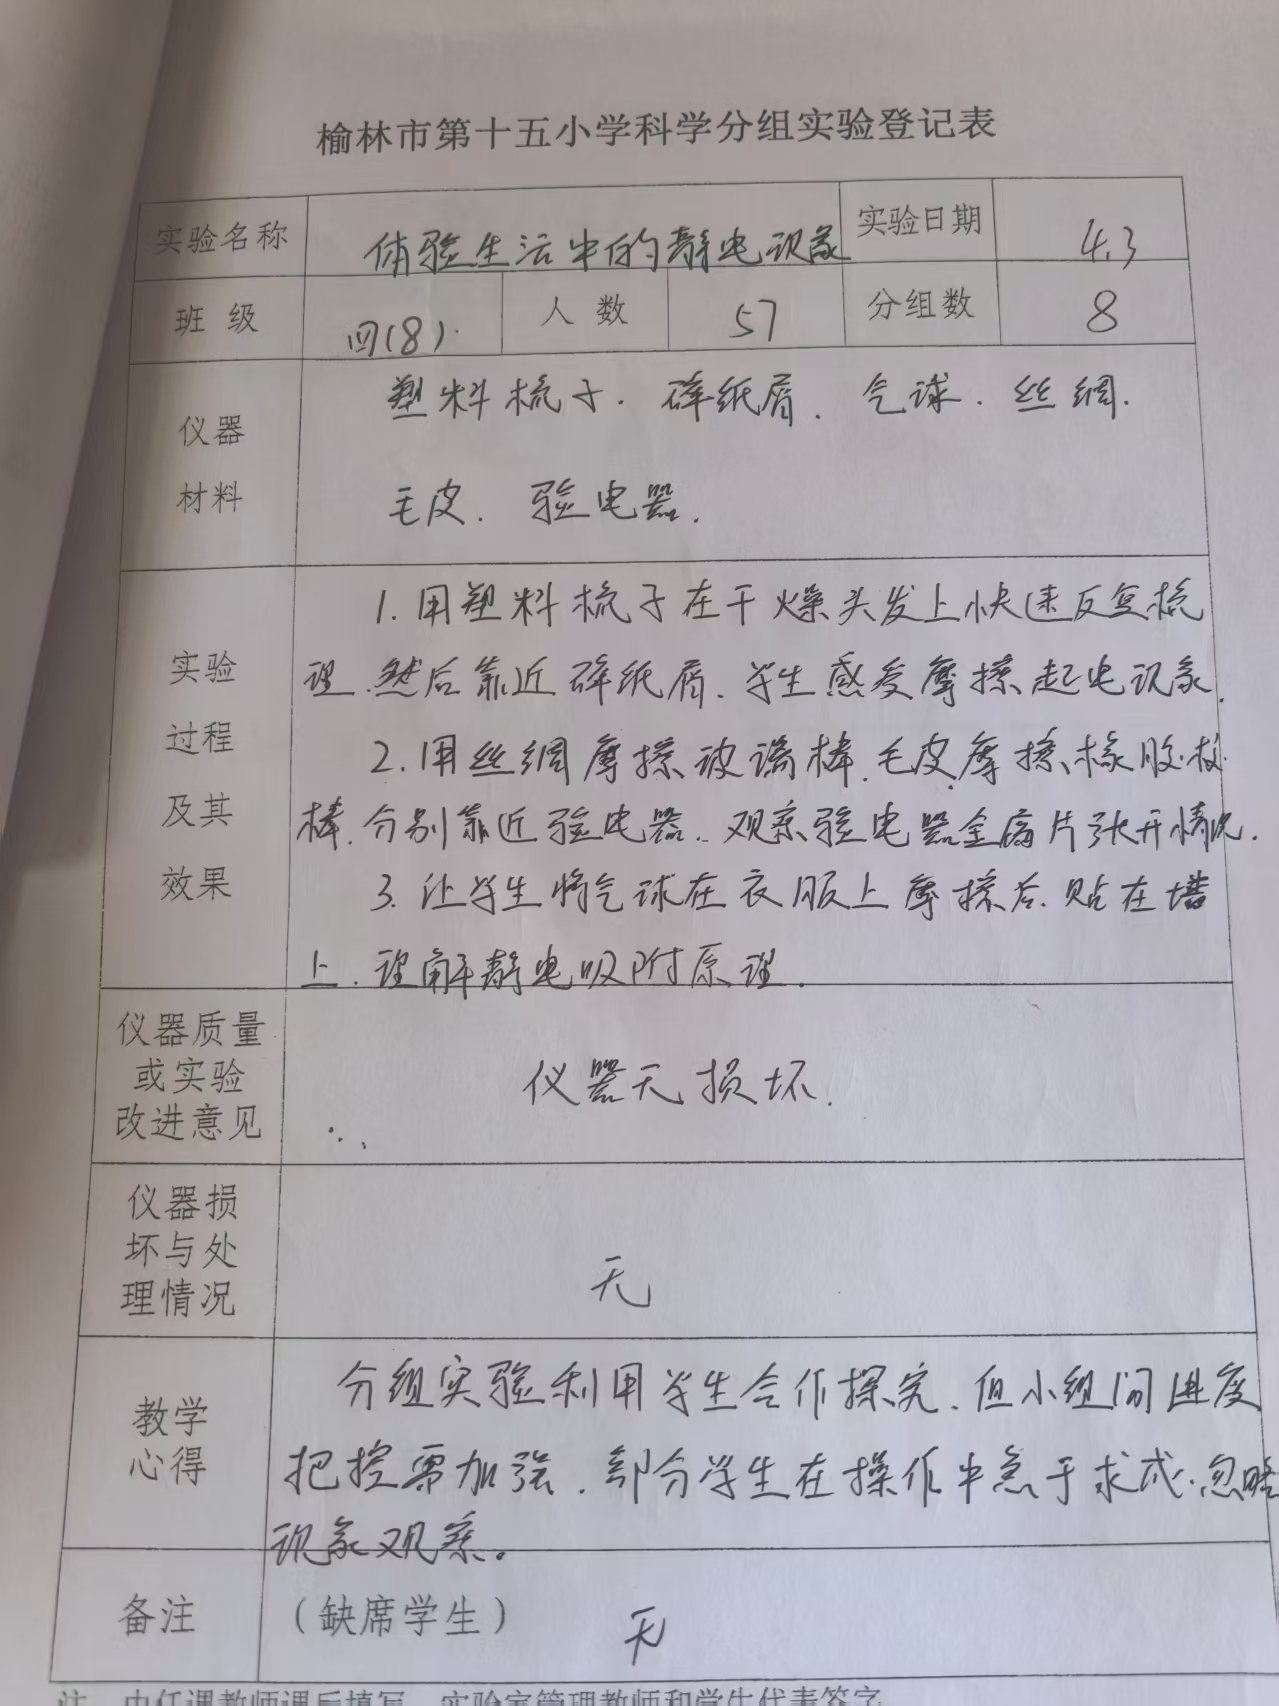 榆林市第十五小学科学分组实验登记表
实验名称 体验生活中的静电现象 实验日期 4.3
班级 四(8). 人数 57 分组数 8
仪器
材料
塑料梳子. 碎纸屑. 气球. 丝绸.
毛皮. 验电器.
实验
过程
及其
效果
1.用塑料梳子在干燥头发上快速反复梳
理.然后靠近碎纸屑.学生感受摩擦起电现象.
2.用丝绸摩擦玻璃棒.毛皮摩擦橡胶
棒.分别靠近验电器..观察验电器金属片张开情况.
3.让学生将气球在衣服上摩擦后.贴在墙
上.理解静电吸附原理.
仪器质量
或实验
改进意见
仪器无损坏.
仪器损
坏与处
理情况
无
教学
心得
分组实验利用学生合作探究.但小组间进度
把控需加强.部分学生在操作中急于求成.忽略
现象观察。
备注 (缺席学生) 无
注 由任课教师课后填写 实验室管理教师和学生代表签字